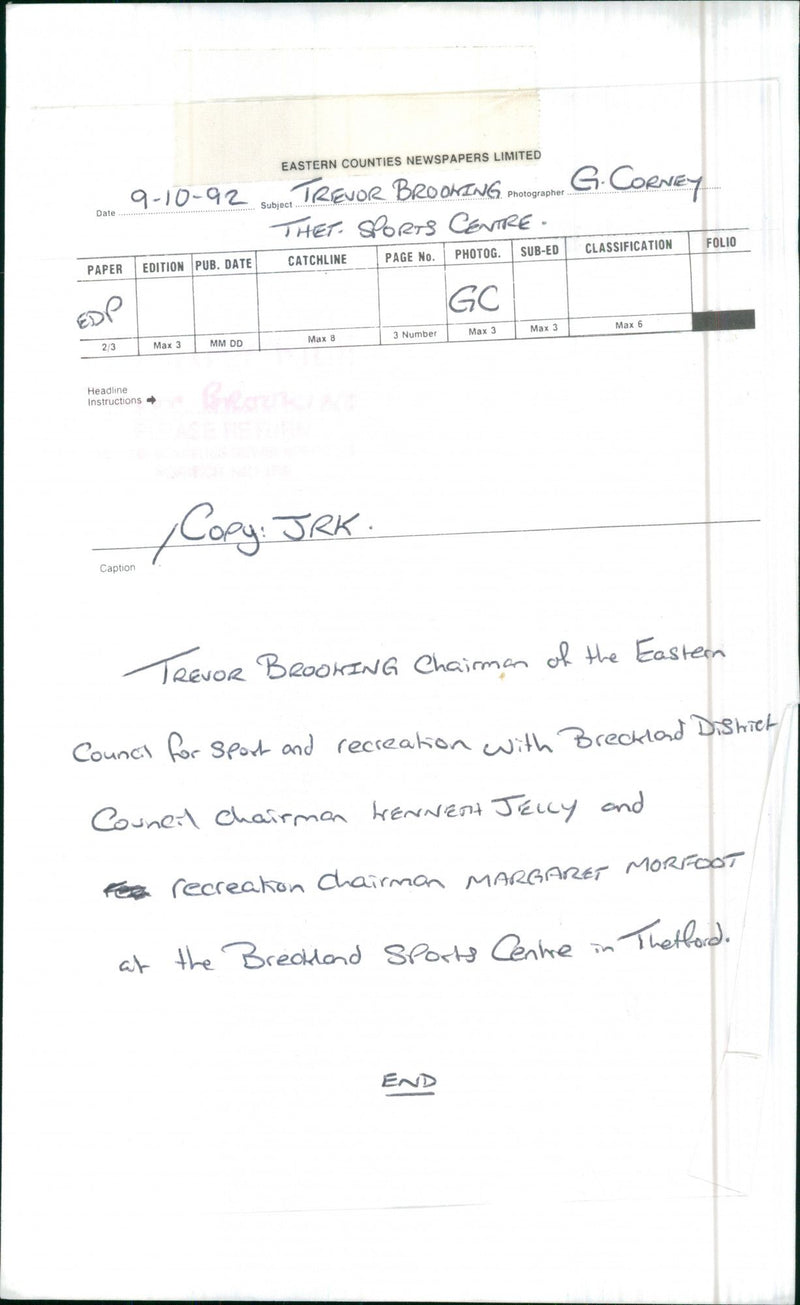 EASTERN COUNTIES NEWSPAPERS LIMITED
Date 9-10-92 Subject TREVOR BROOKING Photographer G. CORNEY
THET. SPORTS CENTRE.
PAPER EDITION PUB. DATE CATCHLINE PAGE No. PHOTOG. SUB-ED CLASSIFICATION FOLIO
EDP GC
2/3 Max 3 MM DD Max 8 3 Number Max 3 Max 3 Max 6
Headline
Instructions ➔
BROOKING
PLEASE RETURN
/Copy: JRK.
Caption
TREVOR BROOKING Chairman of the Eastern
Council for Sport and recreation with Breckland District
Council chairman KENNETH JELLY and
recreation chairman MARGARET MORFOOT
at the Breckland Sports Centre in Thetford.
END